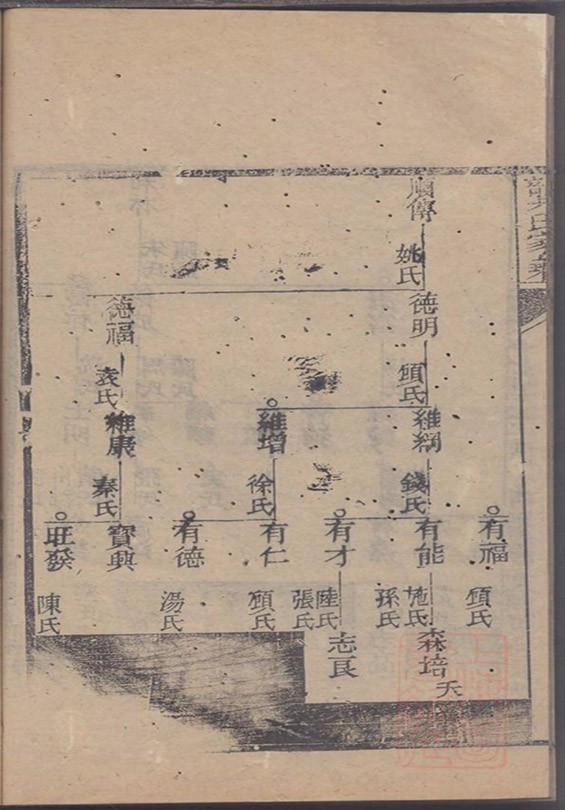 傳
姚氏
德明
德福
顧氏
袁氏
維綱
維增
維康
錢氏
徐氏
秦氏
有福
有能
有才
有仁
有德
寶興
旺發
顧氏
施氏
孫氏
陸氏
張氏
顧氏
湯氏
陳氏
森培
夭
志良